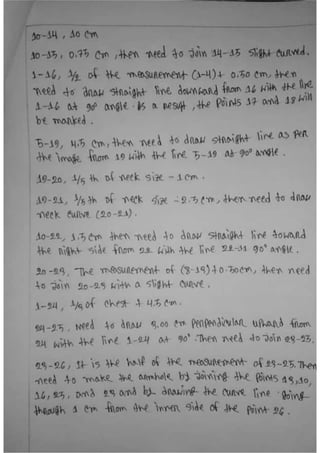 10-14, 10 cm
10-15, 0.75 cm, then need to Join 14-15 slight curved.
1-16, 1/2 of the measurement (1-4) + 0.50 cm, then
need to draw straight line downward from 16 with the line
1-16 at 90° angle. As a result, the points 17 and 18 will
be marked.
5-19, 4.5 cm, then need to draw straight line as per
the image from 19 with the line 5-19 at 90° angle.
19-20, 1/5 th of neck size - 1 cm.
19-21, 1/5 th of neck size - 2.5 cm, then need to draw
neck curve (20-21).
10-22, 1.5 cm then need to draw straight line toward
the right side from 22 with the line 22-11 90° angle.
20-23, The measurement of (8-15) + 0.50 cm, then need
to Join 20-23 with a slight curve.
1-24, 1/4 of chest + 4.5 cm.
24-25, Need to draw 3.00 cm perpendicular upward from
24 with the line 1-24 at 90°. Then need to Join 23-25.
25-26, It is the half of the measurement of 23-25. Then
need to make the armhole by Joining the points 15, 10,
16, 25, and 23 and by drawing the curve line going
through 1 cm from the inner side of the point 26.